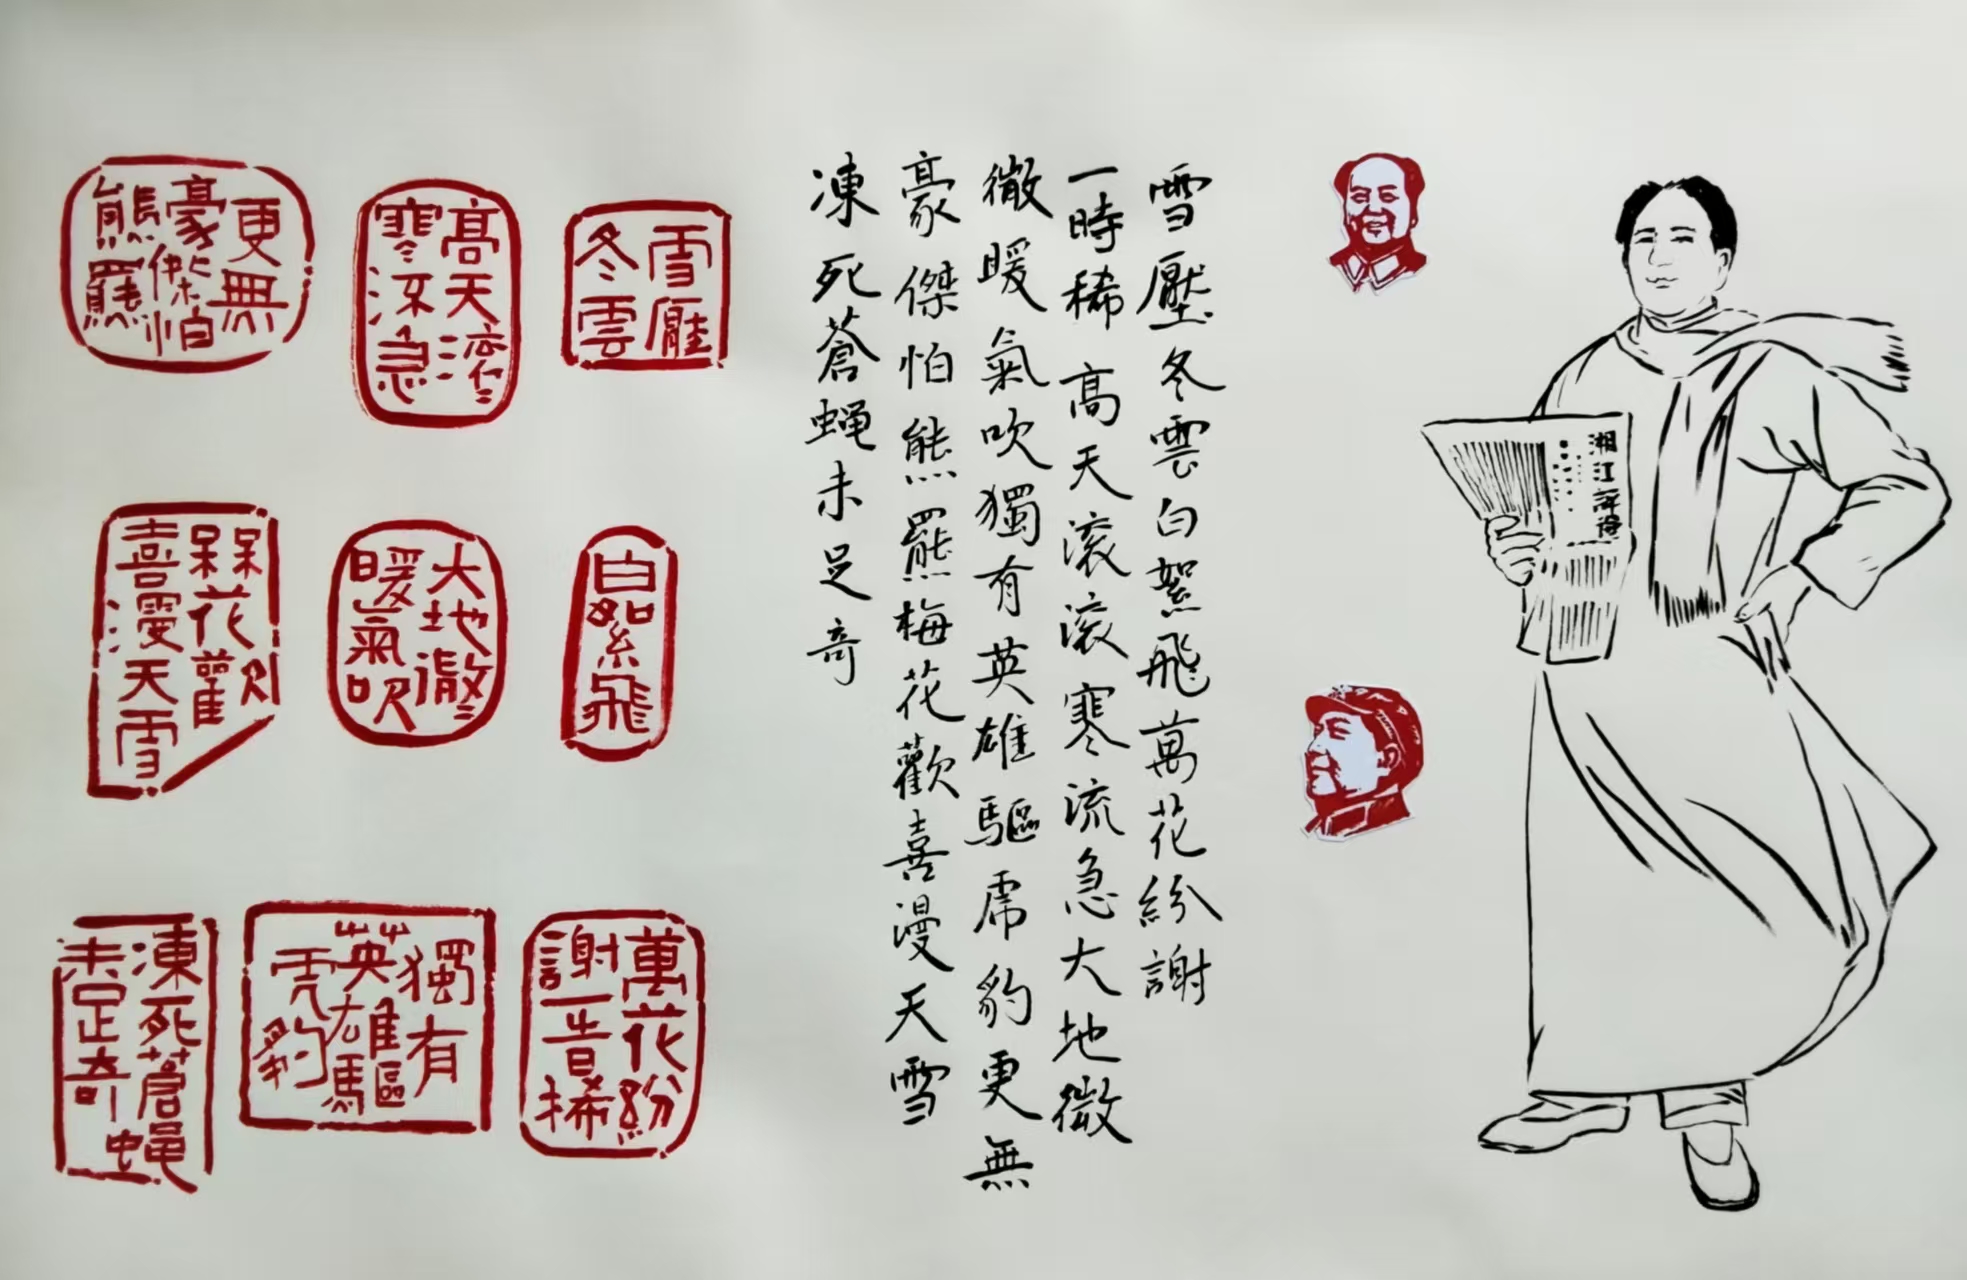 湘江評論
雪壓冬雲白絮飛萬花紛謝
一時稀高天滚滚寒流急大地微
微暖氣吹獨有英雄驅虎豹更無
豪傑怕熊羆梅花歡喜漫天雪
凍死蒼蝇未足奇
雪壓
冬雲
高天滚
寒流急
更無
豪傑怕
熊羆
白絮飛
大地微
暖氣吹
槑花歡
喜漫天雪
萬花紛
謝一旹稀
獨有
英雄驅
虎豹
凍死蒼蝇
未足奇